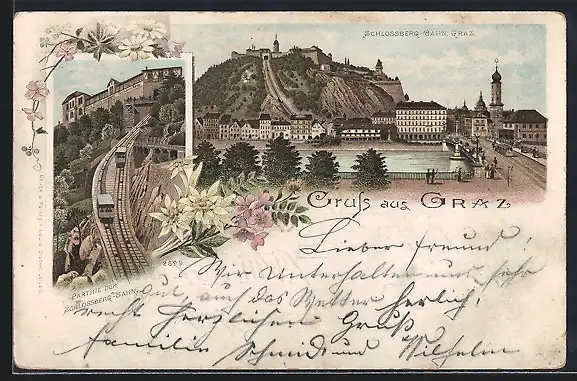 SCHLOSSBERG-BAHN, GRAZ.
Gruss aus GRAZ
PARTHIE DER
SCHLOSSBERG-BAHN.
2699
Lieber Freund!
Wir Unterhalten uns sehr
gut auch das Wetter herlich!
recht herzlichen Gruß
familie Schmid und Wilhelm